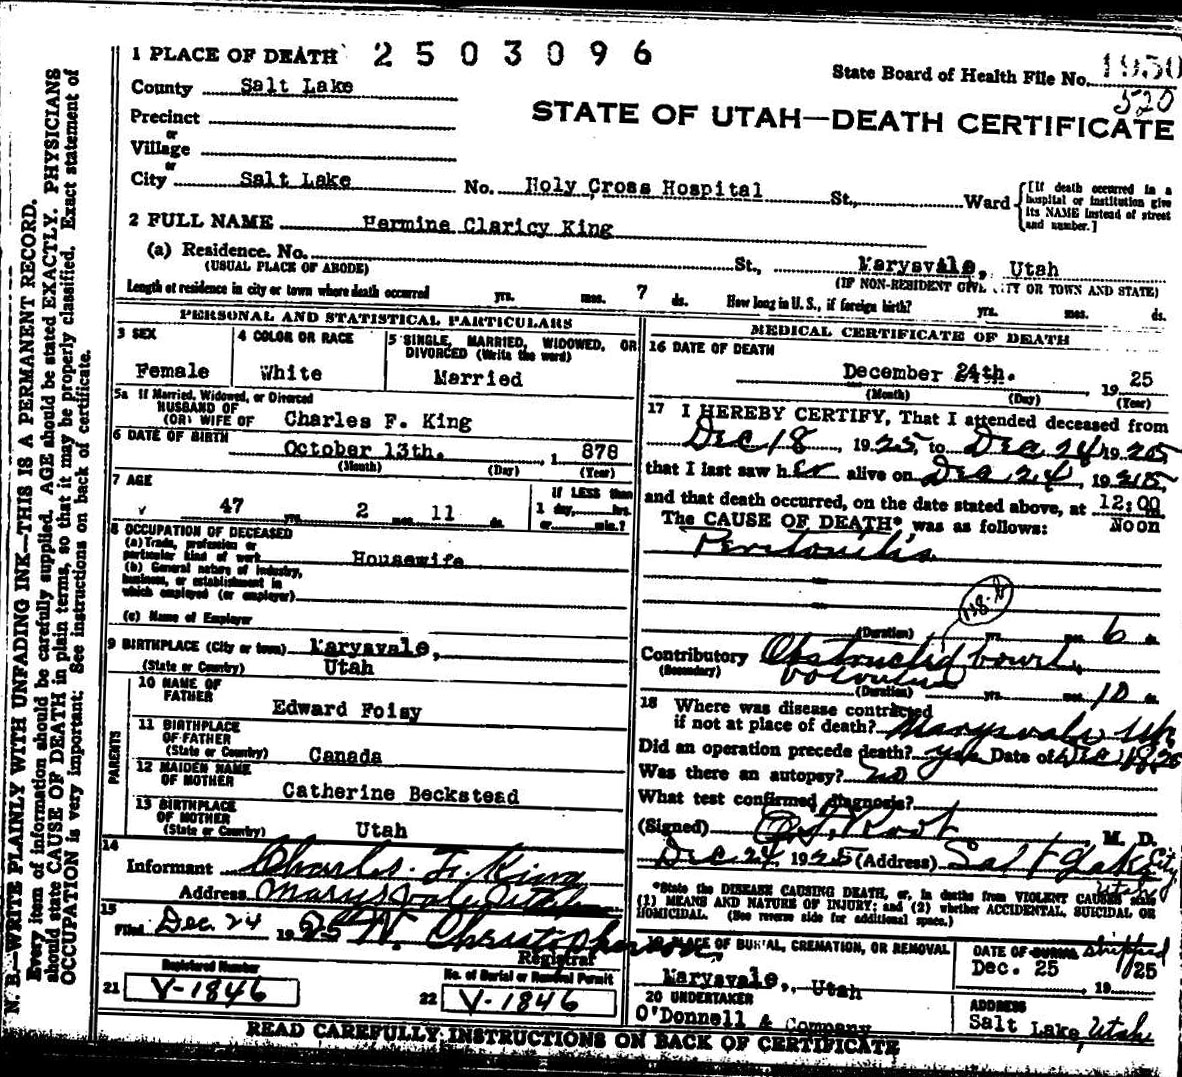 1 PLACE OF DEATH 2503096
State Board of Health File No. 1950
520
County Salt Lake
STATE OF UTAH—DEATH CERTIFICATE
Precinct
or
Village
or
City Salt Lake No. Holy Cross Hospital St., Ward
[If death occurred in a hospital or institution give its NAME instead of street and number.]
2 FULL NAME Hermine Claricy King
(a) Residence. No. St., Marysvale, Utah
(USUAL PLACE OF ABODE) (IF NON-RESIDENT GIVE CITY OR TOWN AND STATE)
Length of residence in city or town where death occurred yrs. mos. 7 ds. How long in U. S., if foreign birth? yrs. mos. ds.
PERSONAL AND STATISTICAL PARTICULARS
3 SEX
Female
4 COLOR OR RACE
White
5 SINGLE, MARRIED, WIDOWED, OR
DIVORCED (Write the word)
Married
5a If Married, Widowed, or Divorced
HUSBAND OF
(OR) WIFE OF Charles F. King
6 DATE OF BIRTH
October 13th. 1 878
(Month) (Day) (Year)
7 AGE
47 yrs. 2 mos. 11 ds.
If LESS than
1 day, hrs.
or min.?
8 OCCUPATION OF DECEASED
(a) Trade, profession or
particular kind of work Housewife
(b) General nature of industry,
business, or establishment in
which employed (or employer)
(c) Name of Employer
9 BIRTHPLACE (City or town) Marysvale,
(State or Country) Utah
PARENTS
10 NAME OF
FATHER
Edward Foisy
11 BIRTHPLACE
OF FATHER
(State or Country) Canada
12 MAIDEN NAME
OF MOTHER Catherine Beckstead
13 BIRTHPLACE
OF MOTHER
(State or Country) Utah
14
Informant Charles F. King
Address Marysvale Utah
15
Filed Dec. 24 1925
Registrar
Registered Number
21 V-1846
No. of Burial or Removal Permit
22 V-1846
MEDICAL CERTIFICATE OF DEATH
16 DATE OF DEATH
December 24th. 19 25
(Month) (Day) (Year)
17 I HEREBY CERTIFY, That I attended deceased from
Dec 18, 1925, to Dec 24 1925,
that I last saw her alive on Dec 24, 1925,
and that death occurred, on the date stated above, at 12:00
Noon
The CAUSE OF DEATH* was as follows:
Peritonitis
(Duration) yrs. mos. 6 ds.
Contributory Obstructed bowel,
(Secondary) volvulus
(Duration) yrs. mos. 10 ds.
18 Where was disease contracted
if not at place of death? Marysvale Ut
Did an operation precede death? yes Date of Dec 18, 25
Was there an autopsy? no
What test confirmed diagnosis?
(Signed) Root M. D.
Dec 24, 1925 (Address) Salt Lake City
Utah
*State the DISEASE CAUSING DEATH, or, in deaths from VIOLENT CAUSES state
(1) MEANS AND NATURE OF INJURY; and (2) whether ACCIDENTAL, SUICIDAL OR
HOMICIDAL. (See reverse side for additional space.)
19 PLACE OF BURIAL, CREMATION, OR REMOVAL
Marysvale., Utah
DATE OF BURIAL shipped
Dec. 25 1925
20 UNDERTAKER
O'Donnell & Company
ADDRESS
Salt Lake, Utah
READ CAREFULLY INSTRUCTIONS ON BACK OF CERTIFICATE
N. B.—WRITE PLAINLY WITH UNFADING INK—THIS IS A PERMANENT RECORD.
Every item of information should be carefully supplied. AGE should be stated EXACTLY. PHYSICIANS
should state CAUSE OF DEATH in plain terms, so that it may be properly classified. Exact statement of
OCCUPATION is very important. See instructions on back of certificate.